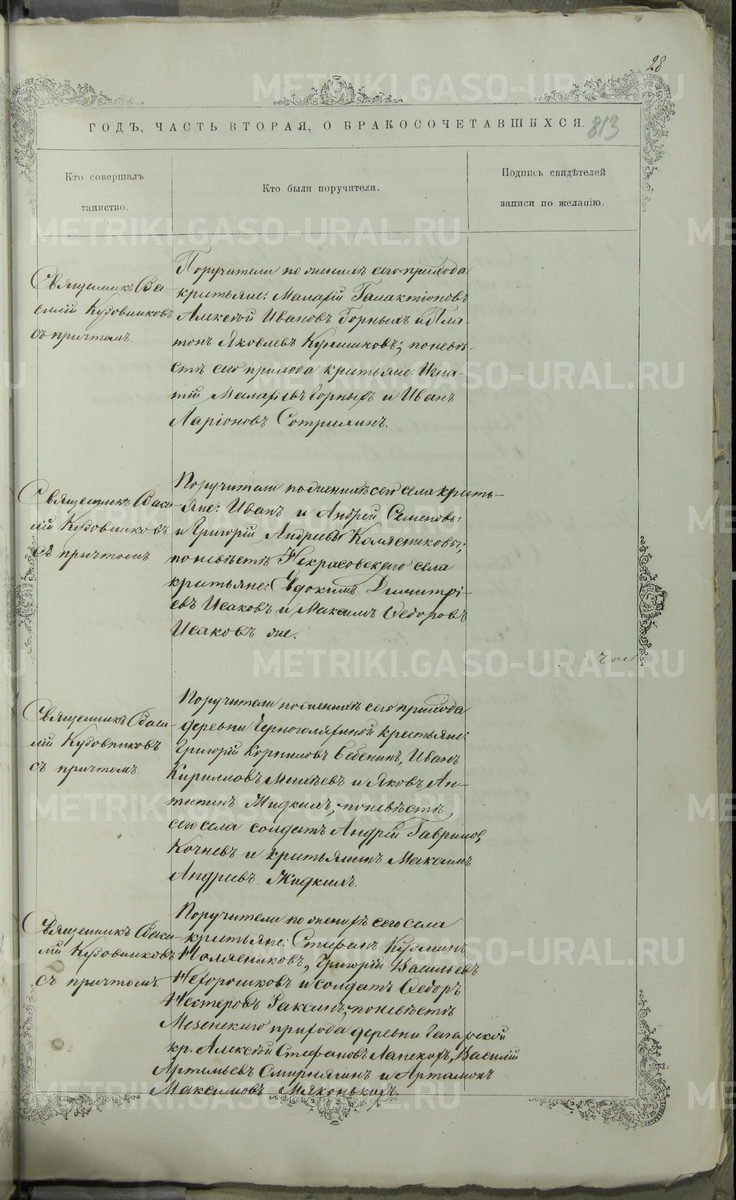 28
ГОДЪ, ЧАСТЬ ВТОРАЯ, О БРАКОСОЧЕТАВШИХСЯ.
813
Кто совершалъ
таинство.
Кто были поручители.
Подпись свидѣтелей
записи по желанію.
Священникъ Ва-
силій Кудовниковъ
съ причтомъ.
Поручители по женихѣ сего прихода
крестьяне: Малафій Галактіоновъ
Алексѣй Ивановъ Горныхъ и Пла-
тонъ Яковлевъ; по невѣ-
стѣ сего прихода крестьяне: Игна-
тій Малафѣевъ Горныхъ и Иванъ
Ларіоновъ
Священникъ Васи-
лій Кудовниковъ
съ причтомъ
Поручители по женихѣ сего села кресть-
яне: Иванъ и Андрей Семеновы
и Григорій Андреевъ Колясниковы;
по невѣстѣ Некрасовскаго села
крестьяне: Евдокимъ Димитрі-
евъ Исаковъ и Максимъ Ѳедоровъ
Исаковъ же.
Священникъ Васи-
лій Кудовниковъ
съ причтомъ
Поручители по женихѣ сего прихода
деревни Черноголятиной крестьяне:
Григорій Корниловъ Бебенинъ, Иванъ
Кирилловъ и Яковъ Ан-
типинъ Жидкихъ; по невѣстѣ
сего села солдатъ Андрей Гавриловъ
Кочневъ и крестьянинъ Максимъ
Андреевъ Жидкихъ.
Священникъ Васи-
лій Кудовниковъ
съ причтомъ.
Поручители по женихѣ сего села
крестьяне: Стефанъ Кузминъ
Колясниковъ, Григорій Васильевъ
Нехорошковъ и солдатъ Ѳедоръ
Нестеровъ; по невѣстѣ
Мезенскаго прихода деревни Гагарской
кр. Алексѣй Стефановъ, Василій
Артемьевъ Смирнягинъ и Артамонъ
Максимовъ Мяконькихъ.
METRIKI.GASO-URAL.RU